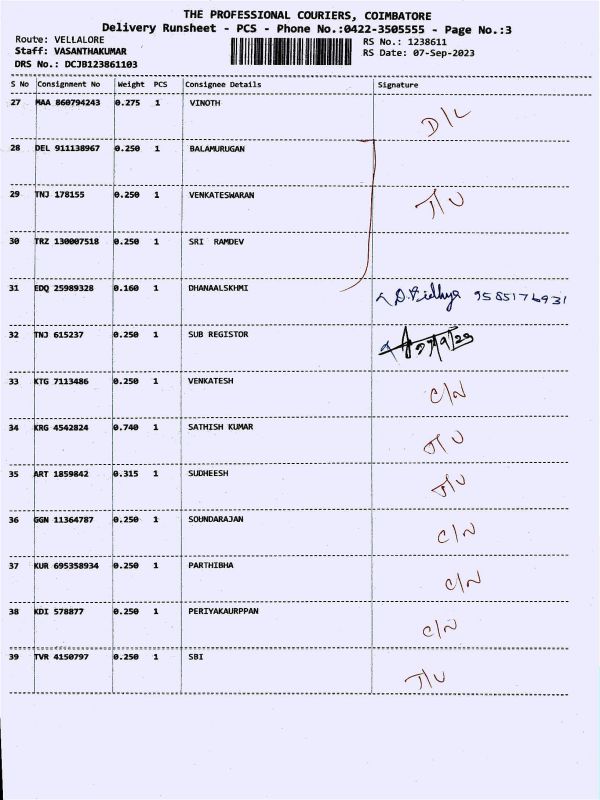 THE PROFESSIONAL COURIERS, COIMBATORE
Delivery Runsheet - PCS - Phone No.:0422-3505555 - Page No.:3
Route: VELLALORE RS No.: 1238611
Staff: VASANTHAKUMAR RS Date: 07-Sep-2023
DRS No.: DCJB123861103
S No Consignment No Weight PCS Consignee Details Signature
27 MAA 860794243 0.275 1 VINOTH D/L
28 DEL 911138967 0.250 1 BALAMURUGAN
29 TNJ 178155 0.250 1 VENKATESWARAN T/U
30 TRZ 130007518 0.250 1 SRI RAMDEV
31 EDQ 25989328 0.160 1 DHANAALSKHMI D.Vidhya 9585176931
32 TNJ 615237 0.250 1 SUB REGISTOR
33 KTG 7113486 0.250 1 VENKATESH C/N
34 KRG 4542824 0.740 1 SATHISH KUMAR T/U
35 ART 1859842 0.315 1 SUDHEESH T/U
36 GGN 11364787 0.250 1 SOUNDARAJAN C/N
37 KUR 695358934 0.250 1 PARTHIBHA C/N
38 KDI 578877 0.250 1 PERIYAKAURPPAN C/N
39 TVR 4150797 0.250 1 SBI T/U